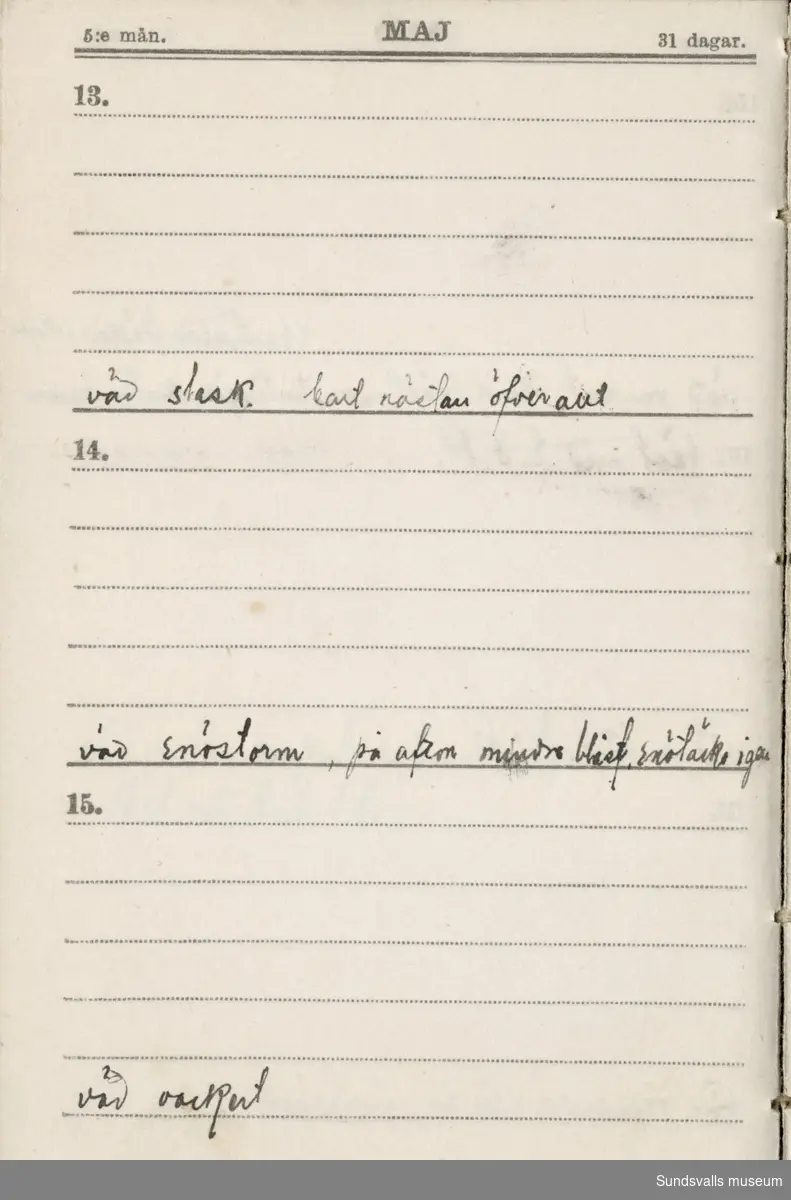 5:e mån. MAJ 31 dagar.
13.
väd slask. bart nästan öfverallt
14.
väd snöstorm, på afton mindre blåst, snötäcke igen
15.
väd vackert
Sundsvalls museum